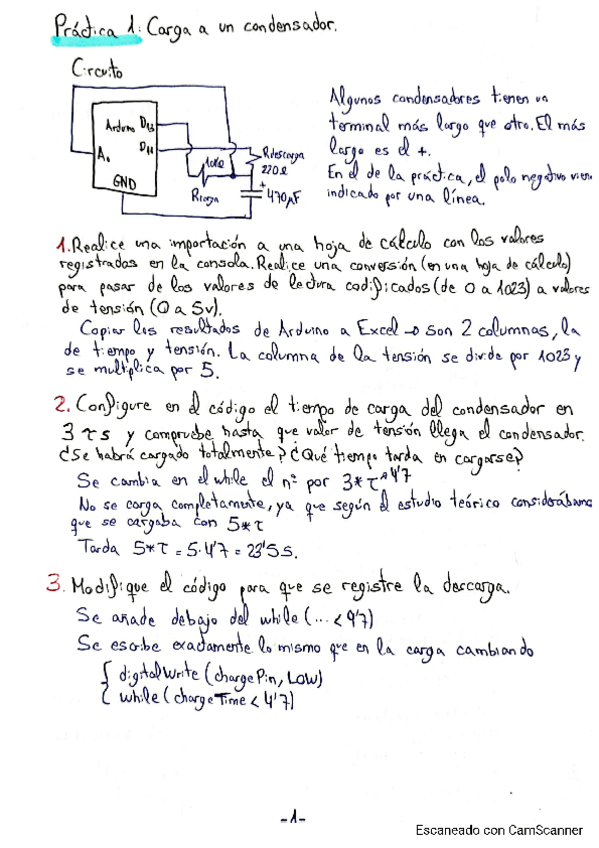 Práctica 1: Carga a un condensador.
Circuito
Arduino D13
D11
A0
GND
10kΩ
Rcarga
Rdescarga
220Ω
+
470µF
Algunos condensadores tienen un
terminal más largo que otro. El más
largo es el +.
En el de la práctica, el polo negativo vien
indicado por una línea.
1. Realice una importación a una hoja de cálculo con los valores
registrados en la consola. Realice una conversión (en una hoja de cálculo)
para pasar de los valores de lectura codificados (de 0 a 1023) a valores
de tensión (0 a 5v).
Copiar los resultados de Arduino a Excel → son 2 columnas, la
de tiempo y tensión. La columna de la tensión se divide por 1023 y
se multiplica por 5.
2. Configure en el código el tiempo de carga del condensador en
3 τ s y compruebe hasta que valor de tensión llega el condensador.
¿Se habrá cargado totalmente? ¿Qué tiempo tarda en cargarse?
Se cambia en el while el nº por 3*τ 4'7
No se carga completamente, ya que según el estudio teórico considerában
que se cargaba con 5*τ
Tarda 5*τ = 5·4'7 = 23'5 s.
3. Modifique el código para que se registre la descarga.
Se añade debajo del while (... < 4'7)
Se escribe exactamente lo mismo que en la carga cambiando
{ digitalWrite (chargePin, LOW)
{ while (chargeTime < 4'7)
-1-
Escaneado con CamScanner